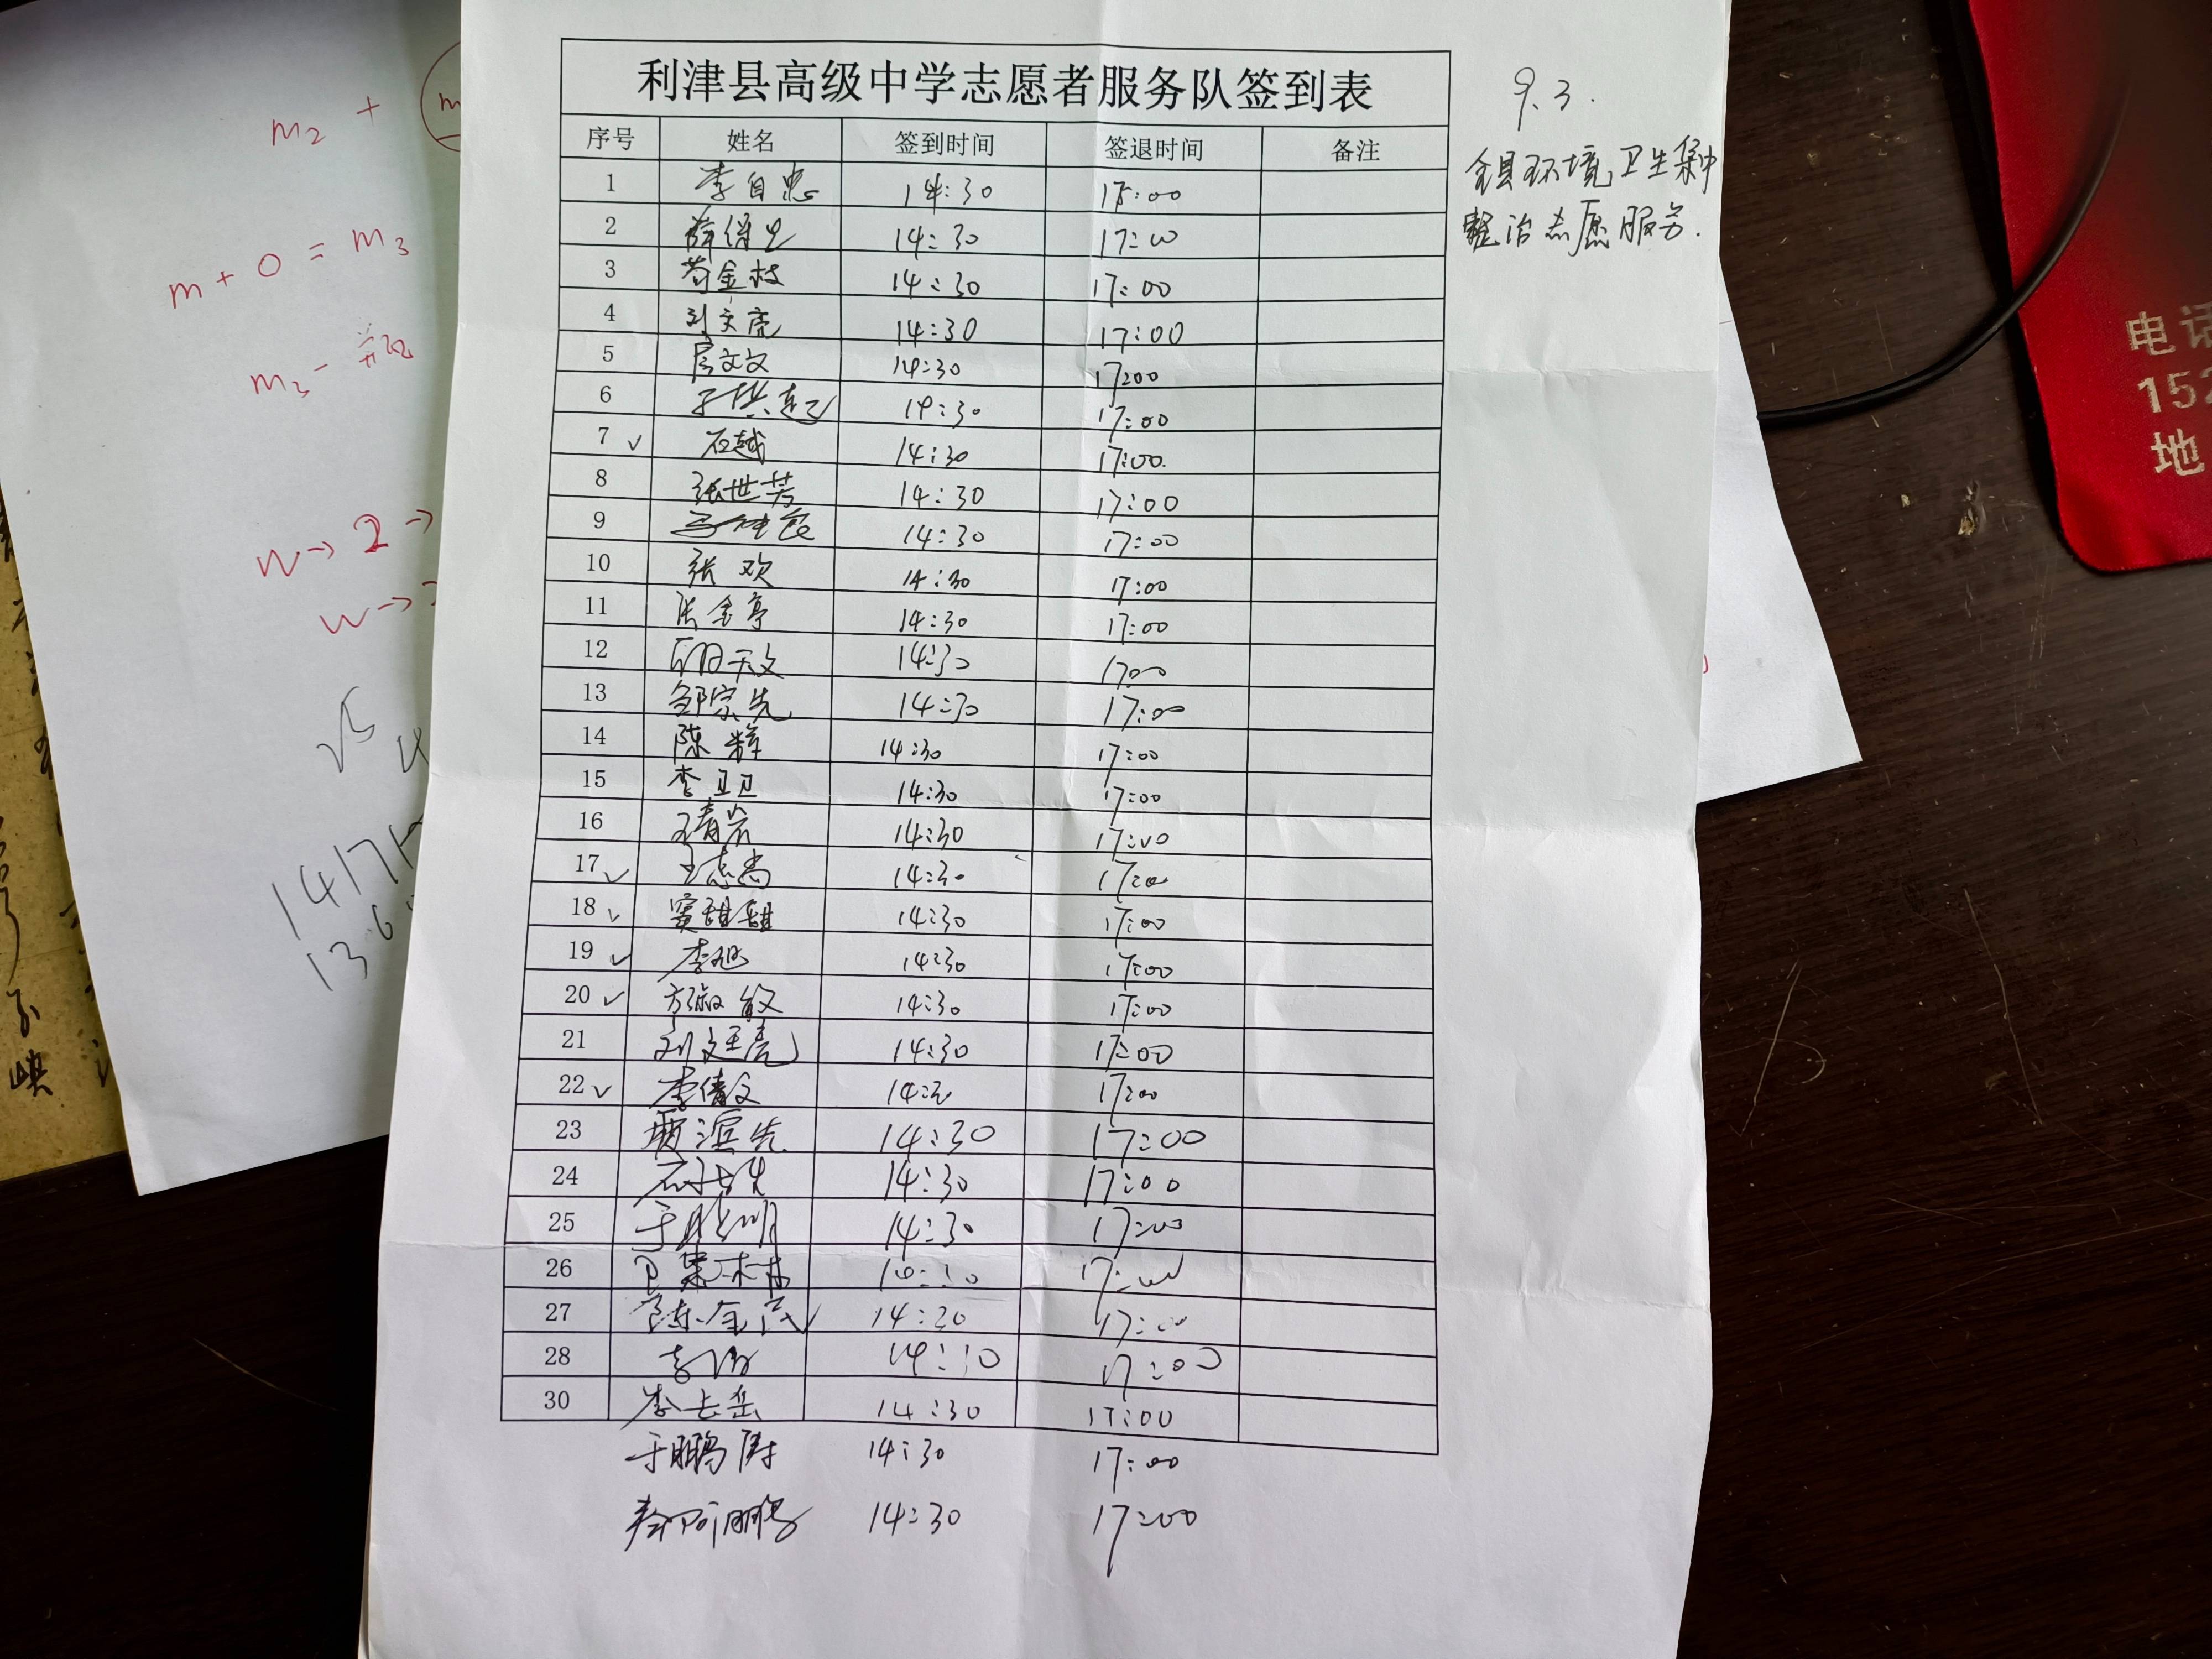 利津县高级中学志愿者服务队签到表
9.3.
全县环境卫生集中
整治志愿服务.
序号 姓名 签到时间 签退时间 备注
1 李自忠 14:30 17:00
2 14:30 17:00
3 苟金枝 14:30 17:00
4 刘文亮 14:30 17:00
5 房文文 14:30 17:00
6 14:30 17:00
7 ✓ 石越 14:30 17:00.
8 张世芳 14:30 17:00
9 14:30 17:00
10 张欢 14:30 17:00
11 张金亭 14:30 17:00
12 14:30 17:00
13 邹宗先 14:30 17:00
14 陈辉 14:30 17:00
15 李卫卫 14:30 17:00
16 王青岩 14:30 17:00
17 ✓ 王志尚 14:30 17:00
18 ✓ 窦甜甜 14:30 17:00
19 ✓ 李旭 14:30 17:00
20 ✓ 方淑敏 14:30 17:00
21 刘廷亮 14:30 17:00
22 ✓ 李倩文 14:30 17:00
23 贾滨先 14:30 17:00
24 14:30 17:00
25 14:30 17:00
26 17:00
27 陈金民 14:30 17:00
28 14:30 17:00
30 李长岳 14:30 17:00
于鹏涛 14:30 17:00
14:30 17:00
m₂ + m
m + 0 = m₃
m₃ -
w → 2 →
w →
√5
电话
152
地